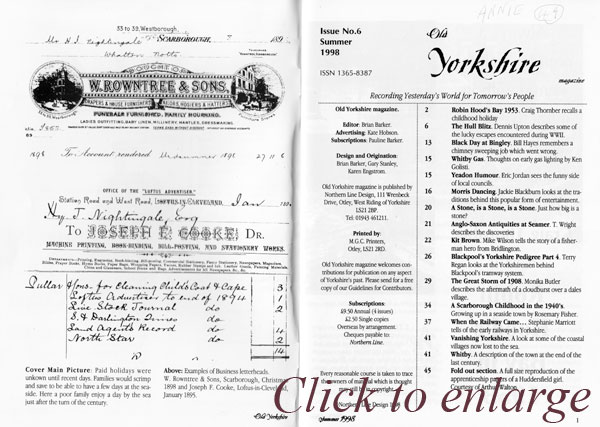 33 to 39, Westborough,
SCARBOROUGH,
189
Mr H J Nightingale
Whatton Notts
BOUGHT OF
W. ROWNTREE & SONS,
DRAPERS & HOUSE FURNISHERS
TAILORS, HOSIERS & HATTERS
FUNERALS FURNISHED. FAMILY MOURNING.
LADIES OUTFITTING, BABY LINEN, MILLINERY, MANTLES, DRESSMAKING.
1898 To Account rendered Midsummer 1898 27 11 6
OFFICE OF THE "LOFTUS ADVERTISER,"
Station Road and West Road, LOFTUS-IN-CLEVELAND, Jan 189
Hy. J. Nightingale, Esq
To JOSEPH F. COOKE, DR.
MACHINE PRINTING, BOOK-BINDING, BILL-POSTING, AND STATIONERY WORKS.
Pullar & Sons. for Cleaning Childs Coat & Cape 3
Loftus Advertiser to end of 1894 1
Live Stock Journal do
S. & Darlington Times do 2
Land Agents Record do 4
North Star do 2
14
Cover Main Picture: Paid holidays were
unkown until recent days. Families would scrimp
and save to be able to have a few days at the sea-
side. Here a poor family enjoy a day by the sea
just after the turn of the century.
Above: Examples of Business letterheads.
W. Rowntree & Sons, Scarborough, Christmas
1898 and Joseph F. Cooke, Loftus-in-Cleveland,
January 1895.
Old Yorkshire
ARNIE
Issue No.6
Summer
1998
ISSN 1365-8387
Old
Yorkshire
magazine
Recording Yesterday's World for Tomorrow's People
Old Yorkshire magazine.
Editor: Brian Barker.
Advertising: Kate Hobson.
Subscriptions: Pauline Barker.
Design and Origination:
Brian Barker, Gary Stanley,
Karen Engstrom.
Old Yorkshire magazine is published by
Northern Line Design, 111 Wrenbeck
Drive, Otley, West Riding of Yorkshire
LS21 2BP.
Tel: 01943 461211.
Printed by:
M.G.C. Printers,
Otley, LS21 2BD.
Old Yorkshire magazine welcomes con-
tributions for publication on any aspect
of Yorkshire's past. Please send for a free
copy of our Guidelines for Contributors.
Subscriptions:
£9.50 Annual (4 issues)
£2.50 Single copies
Overseas by arrangement.
Cheques payable to:
Northern Line.
Every reasonable course is taken to trace
the owners of material which is thought
may still be in copyright.
Northern Line Design 1998
Summer 1998
2 Robin Hood's Bay 1953. Craig Thornber recalls a
childhood holiday
6 The Hull Blitz. Dennis Upton describes some of
the lucky escapes encountered during WWII.
13 Black Day at Bingley. Bill Hayes remembers a
chimney sweeping job which went wrong.
15 Whitby Gas. Thoughts on early gas lighting by Ken
Golisti.
15 Yeadon Humour. Eric Jordan sees the funny side
of local councils.
16 Morris Dancing. Jackie Blackburn looks at the tra-
ditions behind this popular form of entertainment.
20 A Stone, is a Stone, is a Stone. Just how big is a
stone?
21 Anglo-Saxon Antiquities at Seamer. T. Wright
describes the discoveries
22 Kit Brown. Mike Wilson tells the story of a fisher-
man from Bridlington.
26 Blackpool's Yorkshire Pedigree Part 4. Terry
Regan looks at the Yorkshiremen behind
Blackpool's tramway system.
29 The Great Storm of 1908. Monika Butler
describes the aftermath of a cloudburst over a dales
village.
34 A Scarborough Childhood in the 1940's.
Growing up in a seaside town by Rosemary Fisher.
37 When the Railway Came... Stephanie Marriott
tells of the early railways in Yorkshire.
41 Vanishing Yorkshire. A look at some of the coastal
villages now lost to the sea.
41 Whitby. A description of the town at the end of the
last century.
45 Fold out section. A full size reproduction of the
apprenticeship papers of a Huddersfield girl.
Courtesy of Arthur Walton.
1
Click to enlarge